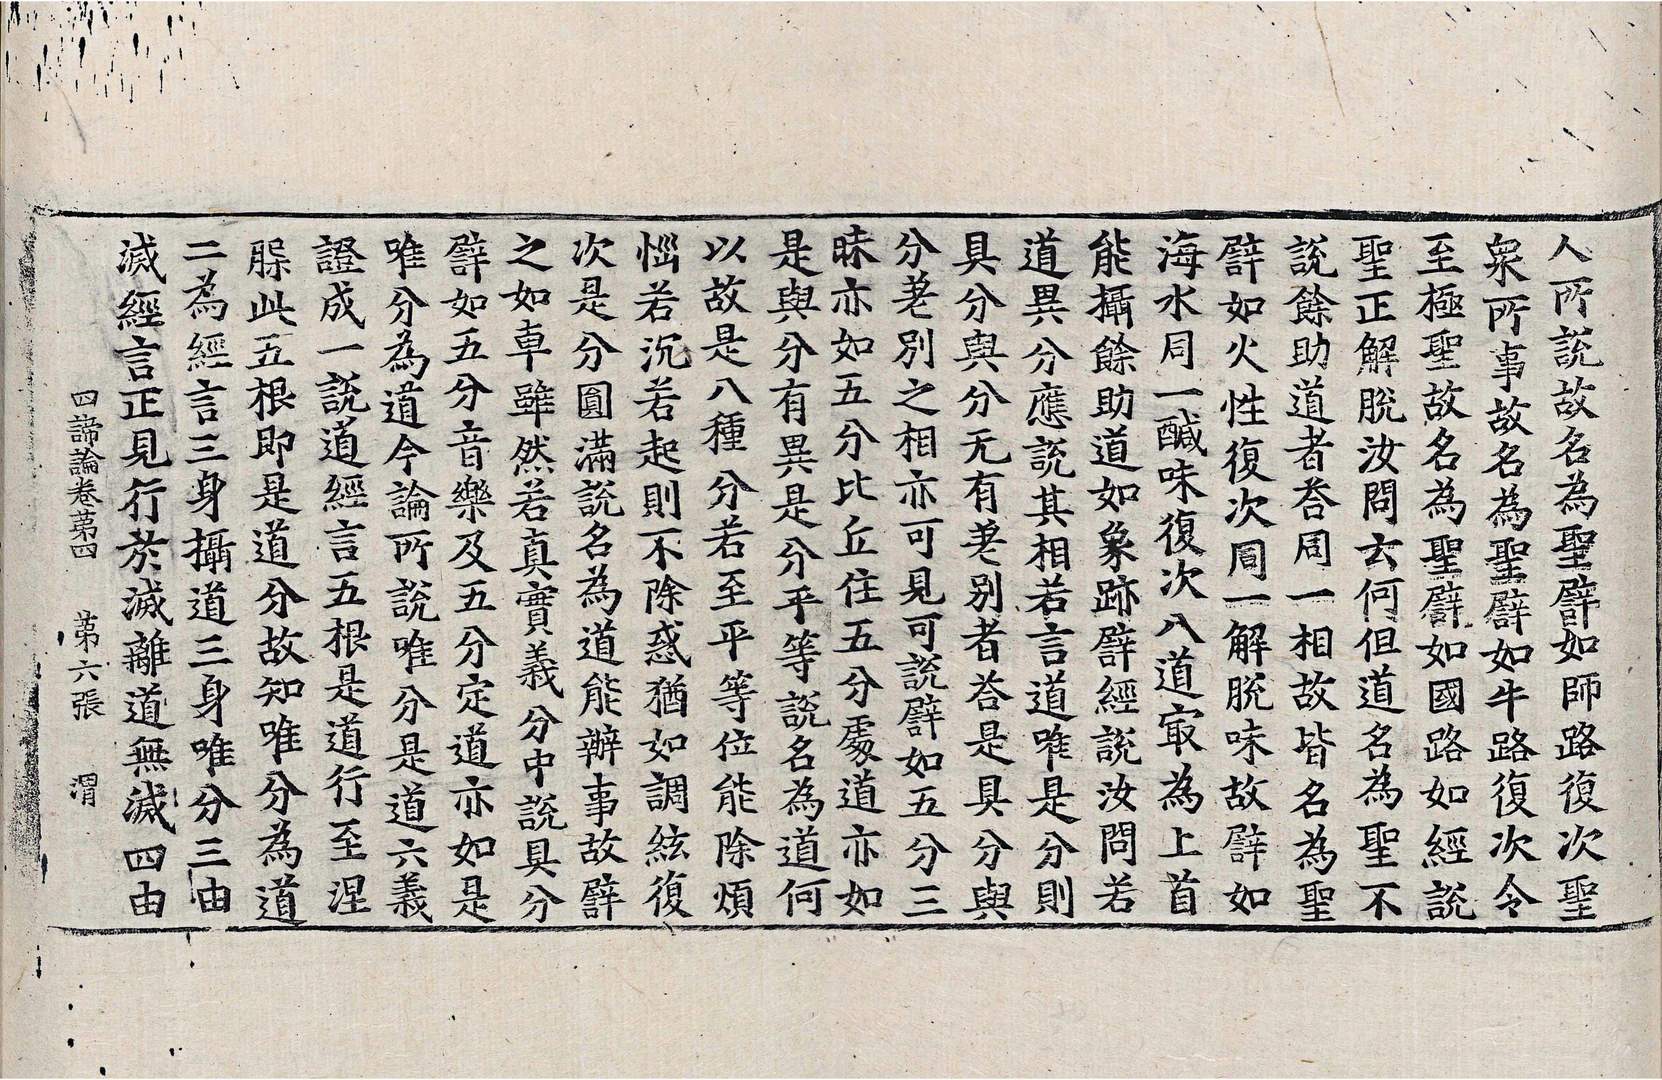 人所說故名為聖譬如師路復次聖
衆所事故名為聖譬如牛路復次令
至極聖故名為聖譬如國路如經說
聖正解脫汝問玄何但道名為聖不
說餘助道者荅同一相故皆名為聖
譬如火性復次同一解脫味故譬如
海水同一醎味復次八道㝡為上首
能攝餘助道如象跡譬經說汝問若
道異分應說其相若言道唯是分則
具分與分无有差别者荅是具分與
分差別之相亦可見可說譬如五分三
昧亦如五分比丘住五分處道亦如
是與分有異是分平等說名為道何
以故是八種分若至平等位能除煩
惱若沉若起則不除惑猶如調絃復
次是分圓滿說名為道能辦事故譬
之如車雖然若真實義分中說具分
譬如五分音樂及五分定道亦如是
唯分為道今論所說唯分是道六義
證成一說道經言五根是道行至涅
槃此五根即是道分故知唯分為道
二為經言三身攝道三身唯分三由
滅經言正見行於滅離道無滅四由
四諦論卷第四 第六張 渭